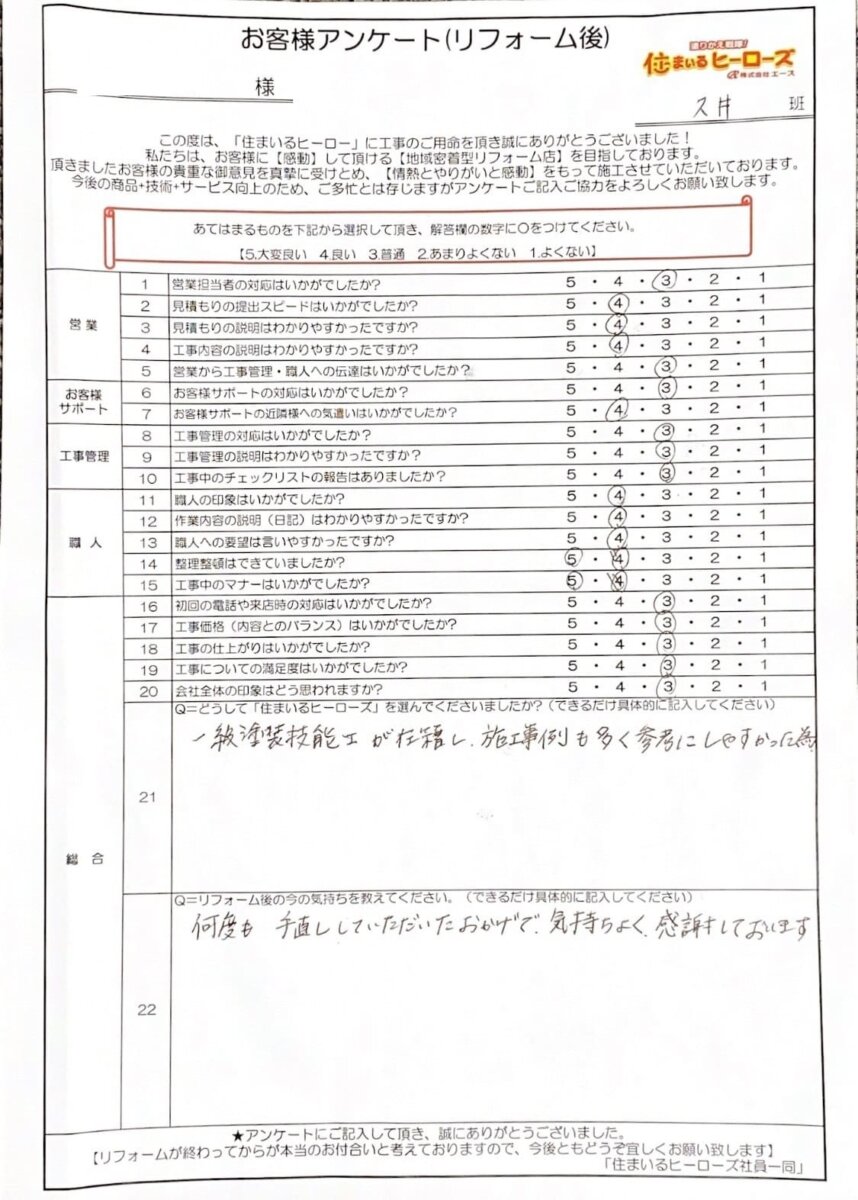 お客様アンケート(リフォーム後)
塗りかえ戦隊!
住まいるヒーローズ
株式会社エース
様
久井 班
この度は、「住まいるヒーロー」に工事のご用命を頂き誠にありがとうございました!
私たちは、お客様に【感動】して頂ける【地域密着型リフォーム店】を目指しております。
頂きましたお客様の貴重な御意見を真摯に受けとめ、【情熱とやりがいと感動】をもって施工させていただいております。
今後の商品+技術+サービス向上のため、ご多忙とは存じますがアンケートご記入ご協力をよろしくお願い致します。
あてはまるものを下記から選択して頂き、解答欄の数字に○をつけてください。
【5.大変良い 4.良い 3.普通 2.あまりよくない 1.よくない】
営業
1 営業担当者の対応はいかがでしたか? 5・4・3・2・1
2 見積もりの提出スピードはいかがでしたか? 5・4・3・2・1
3 見積もりの説明はわかりやすかったですか? 5・4・3・2・1
4 工事内容の説明はわかりやすかったですか? 5・4・3・2・1
5 営業から工事管理・職人への伝達はいかがでしたか? 5・4・3・2・1
お客様
サポート
6 お客様サポートの対応はいかがでしたか? 5・4・3・2・1
7 お客様サポートの近隣様への気遣いはいかがでしたか? 5・4・3・2・1
工事管理
8 工事管理の対応はいかがでしたか? 5・4・3・2・1
9 工事管理の説明はわかりやすかったですか? 5・4・3・2・1
10 工事中のチェックリストの報告はありましたか? 5・4・3・2・1
職人
11 職人の印象はいかがでしたか? 5・4・3・2・1
12 作業内容の説明(日記)はわかりやすかったですか? 5・4・3・2・1
13 職人への要望は言いやすかったですか? 5・4・3・2・1
14 整理整頓はできていましたか? 5・4・3・2・1
15 工事中のマナーはいかがでしたか? 5・4・3・2・1
総合
16 初回の電話や来店時の対応はいかがでしたか? 5・4・3・2・1
17 工事価格(内容とのバランス)はいかがでしたか? 5・4・3・2・1
18 工事の仕上がりはいかがでしたか? 5・4・3・2・1
19 工事についての満足度はいかがでしたか? 5・4・3・2・1
20 会社全体の印象はどう思われますか? 5・4・3・2・1
21 Q=どうして「住まいるヒーローズ」を選んでくださいましたか?(できるだけ具体的に記入してください)
一級塗装技能士が在籍し、施工事例も多く参考にしやすかった為
22 Q=リフォーム後の今の気持ちを教えてください。(できるだけ具体的に記入してください)
何度も 手直ししていただいたおかげで、気持ちよく、感謝しております
★アンケートにご記入して頂き、誠にありがとうございました。
【リフォームが終わってからが本当のお付合いと考えておりますので、今後ともどうぞ宜しくお願い致します】
「住まいるヒーローズ社員一同」